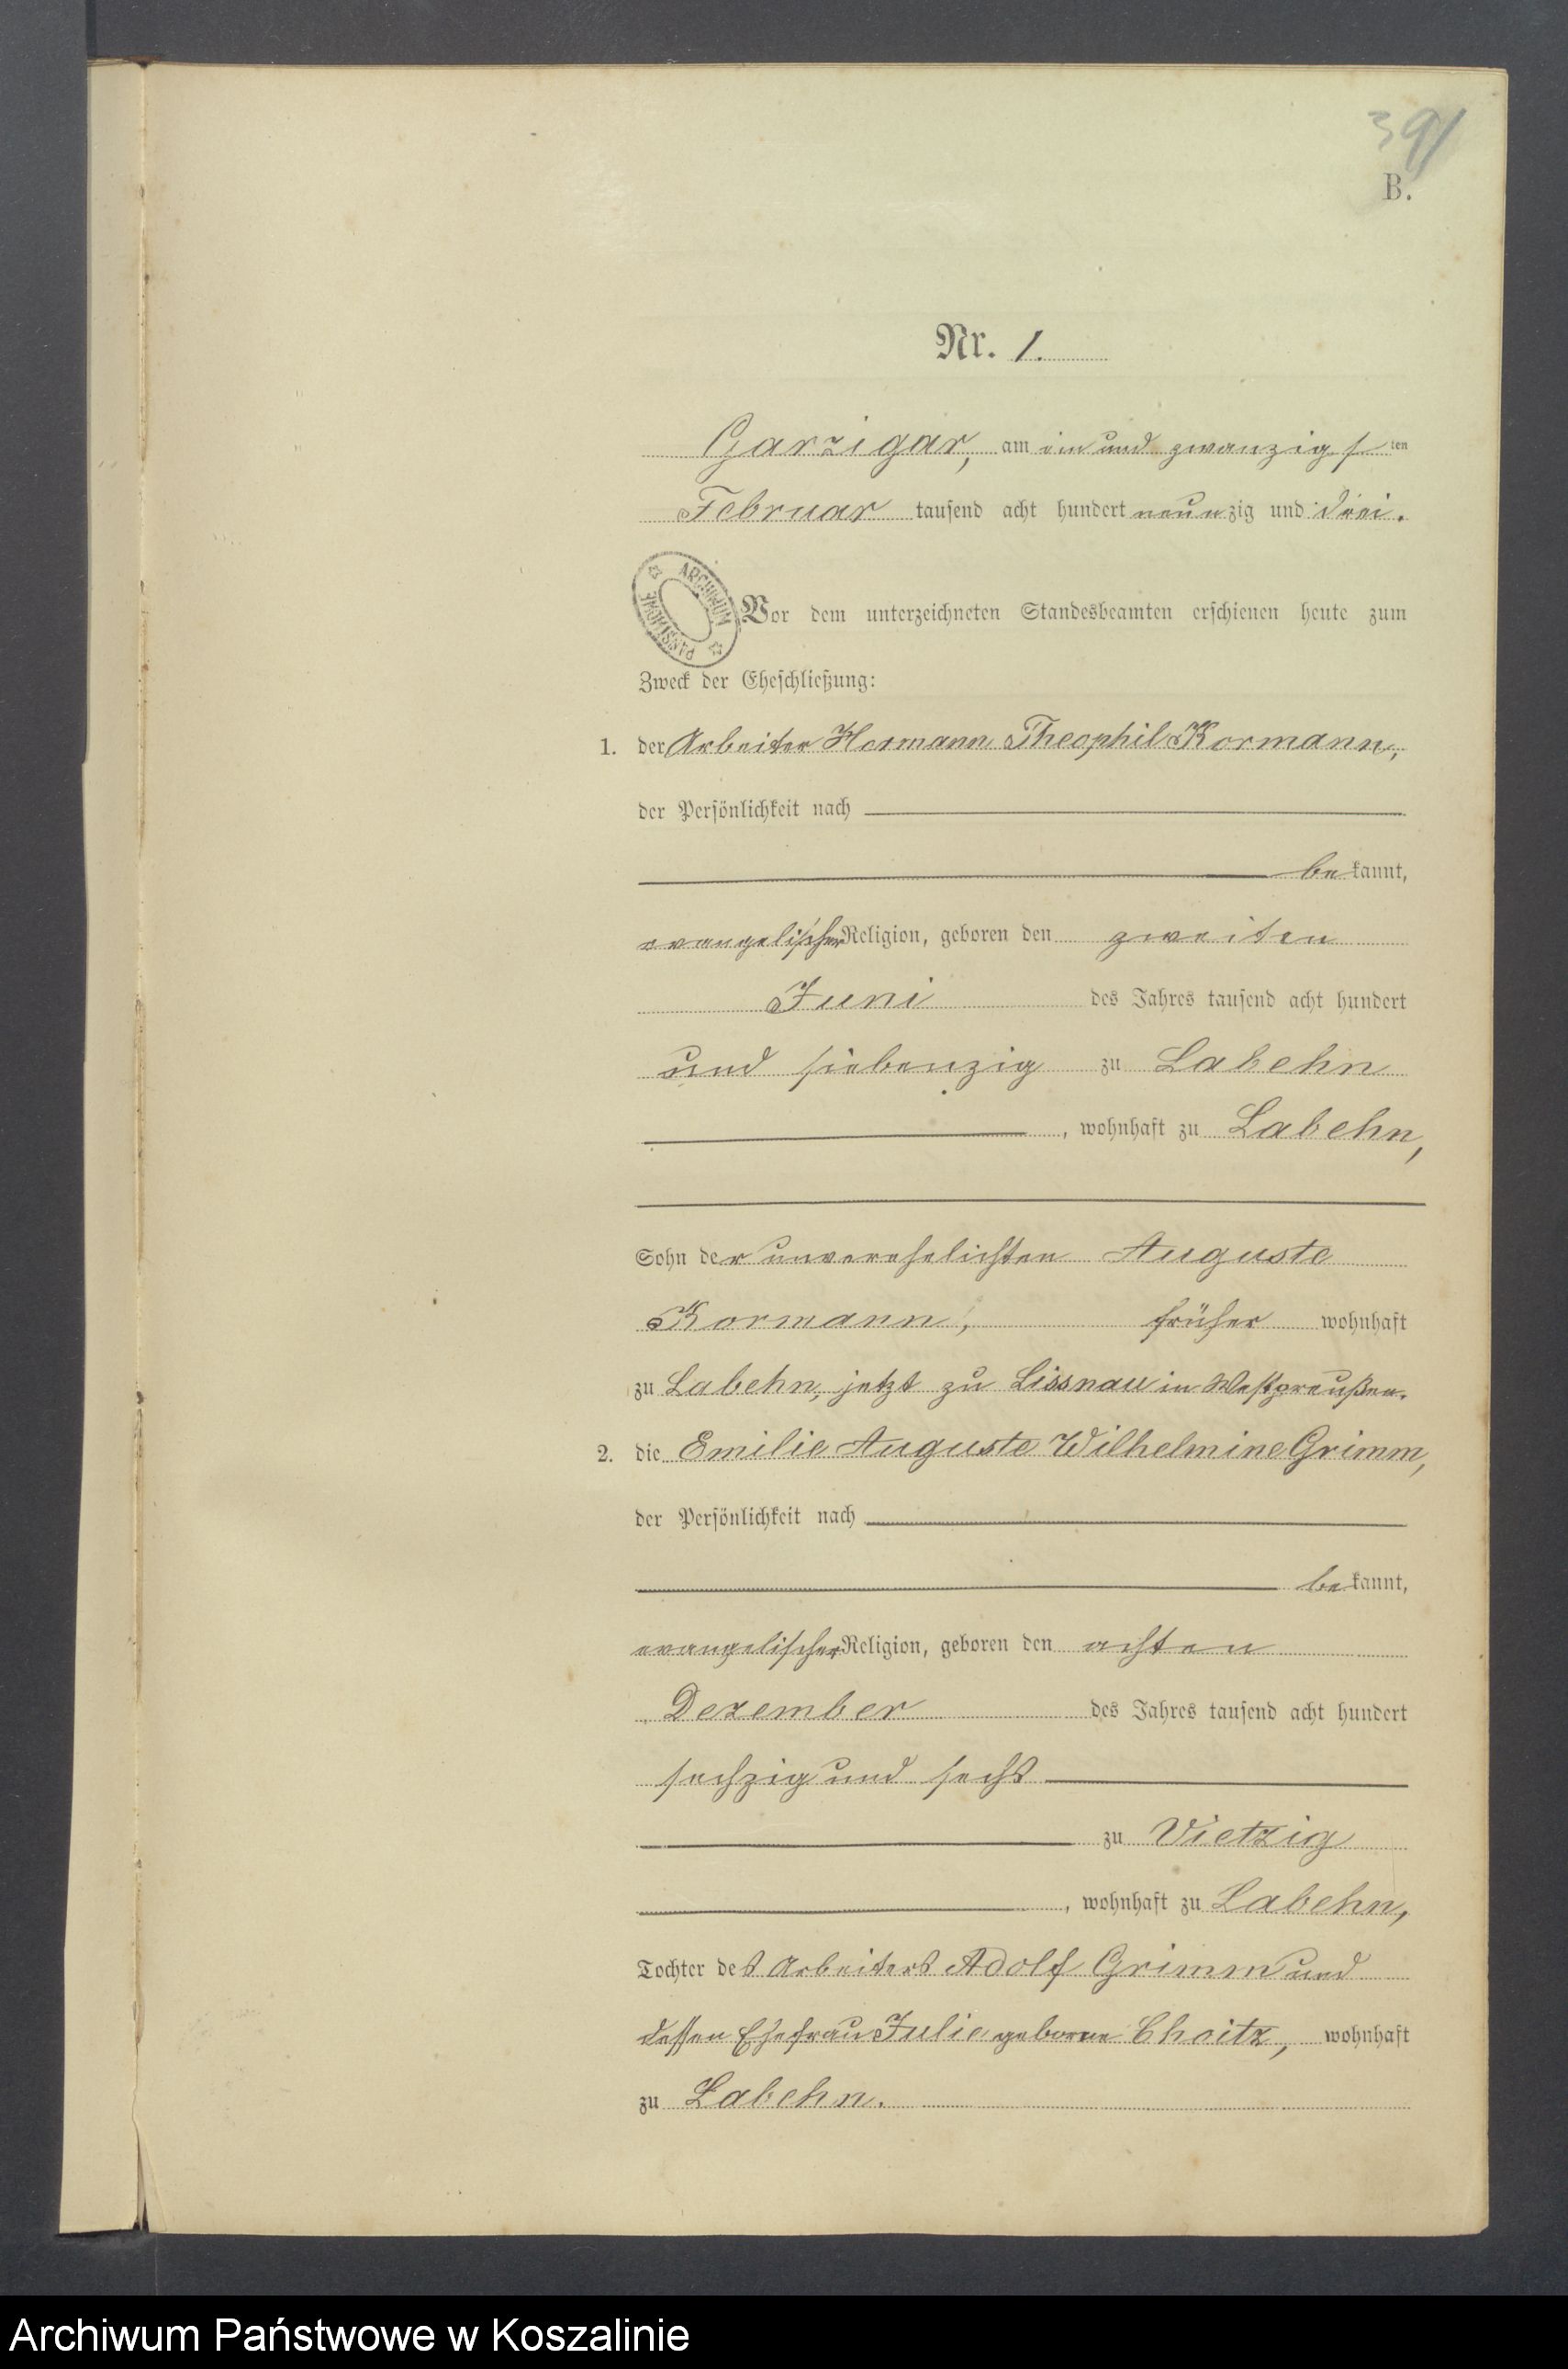 391
B.
Nr. 1.
Garzigar, am ein und zwanzigsten
Februar tausend acht hundert neunzig und drei.
ARCHIWUM PAŃSTWOWE
Vor dem unterzeichneten Standesbeamten erschienen heute zum
Zweck der Eheschließung:
1. der Arbeiter Hermann Theophil Kormann,
der Persönlichkeit nach
bekannt,
evangelischer Religion, geboren den zweiten
Juni des Jahres tausend acht hundert
und siebenzig zu Labehn
, wohnhaft zu Labehn,
Sohn der unverehelichten Auguste
Kormann, früher wohnhaft
zu Labehn, jetzt zu Lissnau in Westpreußen.
2. die Emilie Auguste Wilhelmine Grimm,
der Persönlichkeit nach
bekannt,
evangelischer Religion, geboren den achten
Dezember des Jahres tausend acht hundert
sechzig und sechs
zu Vietzig
, wohnhaft zu Labehn,
Tochter des Arbeiters Adolf Grimm und
dessen Ehefrau Julie geborne Choitz, wohnhaft
zu Labehn.
Archiwum Państwowe w Koszalinie